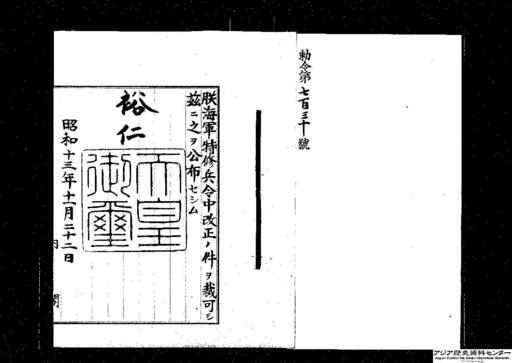 勅令第七百三十號
朕海軍特修兵令中改正ノ件ヲ裁可シ
茲ニ之ヲ公布セシム
裕仁
天皇
御璽
昭和十三年十一月二十二日
内
閣
アジア歴史資料センター
Japan Center for Asian Historical Records